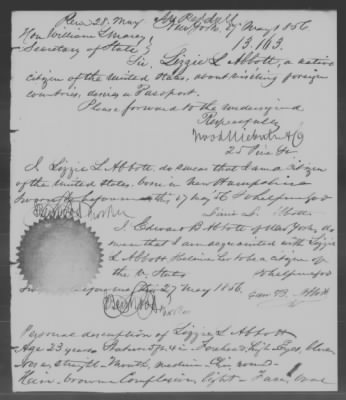 Rec. 28. May
New York. 27 May 1856
Hon William L Marcy
Secretary of State
13.163.
Sir, Lizzie L. Abbott, a native
citizen of the United States, about visiting foreign
countries, desires a Passport.
Please forward to the undersigned
Respectfully
25 Pine St
I Lizzie L Abbott, do swear that I am a citizen
of the United States. born in New Hampshire
Sworn to before me this 27 May 56 So help me God
Lizzie L. Abbott
I. Edward B. Abbott of New York, do
swear that I am acquainted with Lizzie
L Abbott & believe her to be a citizen of
the U. States So help me God
Sworn before me this 27 May 1856.
Edw B. Abbott
Personal description of Lizzie L Abbott
Age 23 years Stature 5 ft 4 in - Forehead, high - Eyes, blue
Nose, straight - Mouth, medium - Chin, round -
Hair, brown - Complexion, light - Face, oval